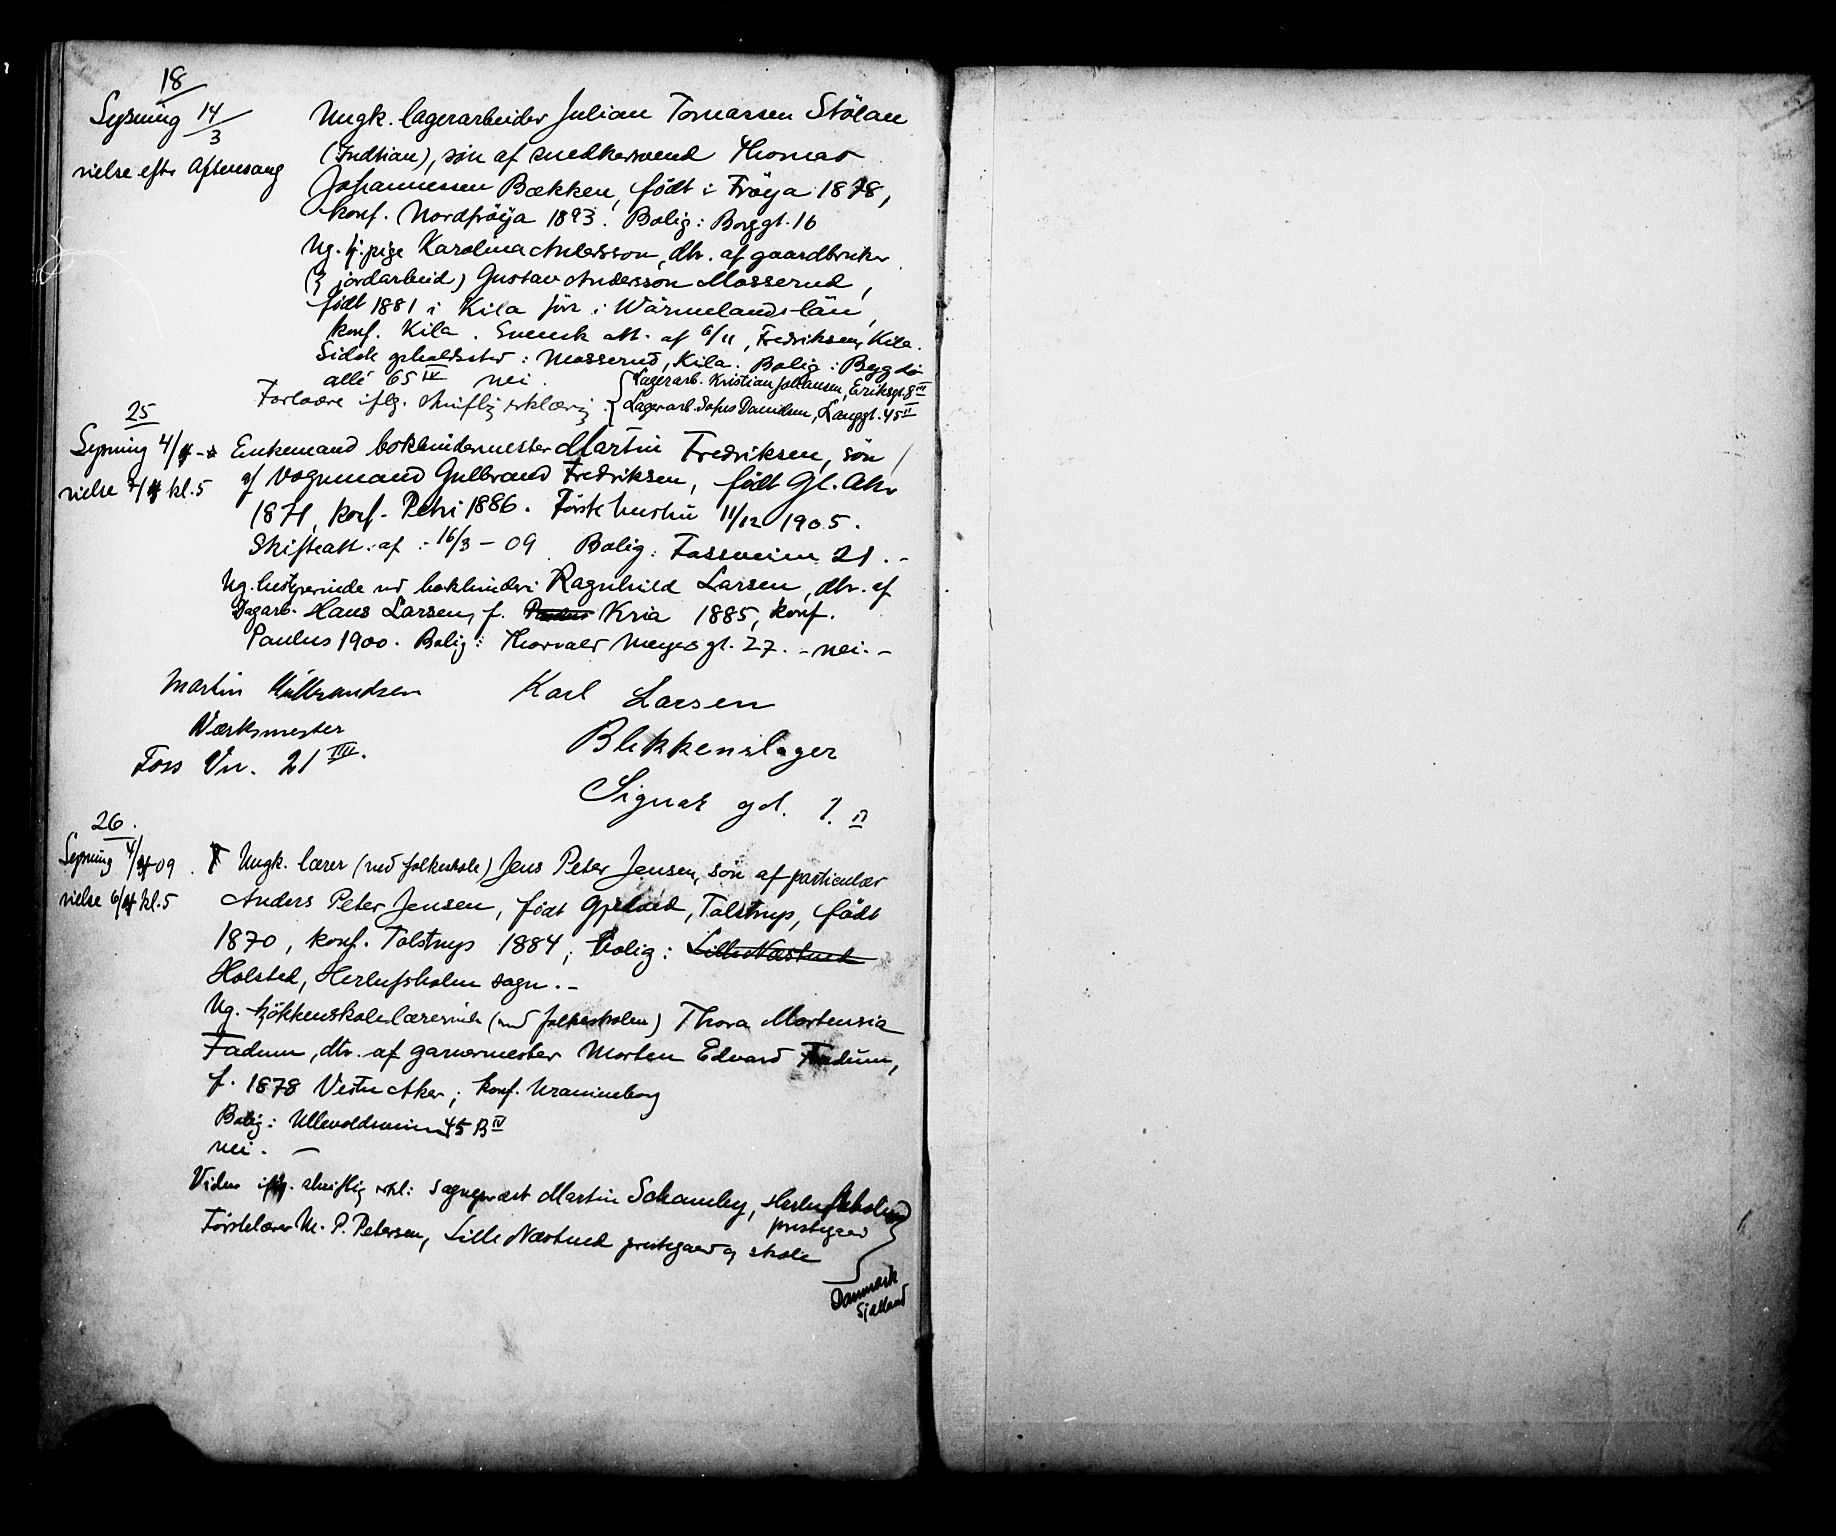 18
Lysning 14/3
vielse efter Aftensang
Ungk. lagerarbeider Julian Tomassen Stölan
(Indtian), søn af snedkersvend Thomas
Johannessen Bækken, født i Frøya 1878,
konf. Nordfrøya 1893. Bolig: Borggt. 16
Ug. tj.pige Karolina Andersson, dtr. af gaardbruker
(jordarbeid) Gustav Andersson Mosserud,
født 1881 i Kila för. i Wärmelands län,
konf. Kila. Svensk att. af 6/11, Fredriksen, Kila.
Sidste opholdssted: Mosserud, Kila. Bolig: Bygdø
allé 65 IV nei.
Forlovere iflg. skriftlig erklæring
Lagerarb. Kristian Johansen, Eriksgt. 8 III
Lagerarb. Sofus Davidsen, Langgt. 45 II
25
Lysning 4/4
vielse 4/4 kl. 5
Enkemand bokbindermester Martin Fredriksen, søn
af Vognmand Gulbrand Fredriksen, født Gl. Aker
1871, konf. Petri 1886. Første hustru 11/12 1905.
Skifteatt. af 16/3 - 09. Bolig: Fossveien 21. -
Ug. bestyrerinde ved bokbinderi Ragnhild Larsen, dtr. af
Dagarb. Hans Larsen, f. Paulus Kria 1885, konf.
Paulus 1900. Bolig: Thorvald Meyers gt. 27. - nei. -
Martin Gulbrandsen
Værksmester
Foss Vn. 21 IIII.
Karl Larsen
Blikkenslager
Signes gd. 1. II
26.
Lysning 4/4 09.
vielse 6/4 kl. 5
Ungk. lærer (ved folkeskole) Jens Peter Jensen, søn af particulær
Anders Peter Jensen, født Gjedved, Tolstrup, født
1870, konf. Tolstrup 1884; bolig: Lille Næstved
Holsted, Herlufsholm sogn. -
Ug. kjøkkenskolelærerinde (ved folkeskolen) Thora Mortensia
Fadum, dtr. af garvermester Morten Edvard Fadum,
f. 1878 Vestre Aker; konf. Uranienborg
Bolig: Ullevoldsveien 45 B IV
nei. -
Vidner iflg. skriftlig erkl: sogneprest Martin Schamby, Herlufsholm
prestegaard
Førstelærer M. P. Petersen, Lille Næstved prestegaard og skole
Danmark
Sjælland